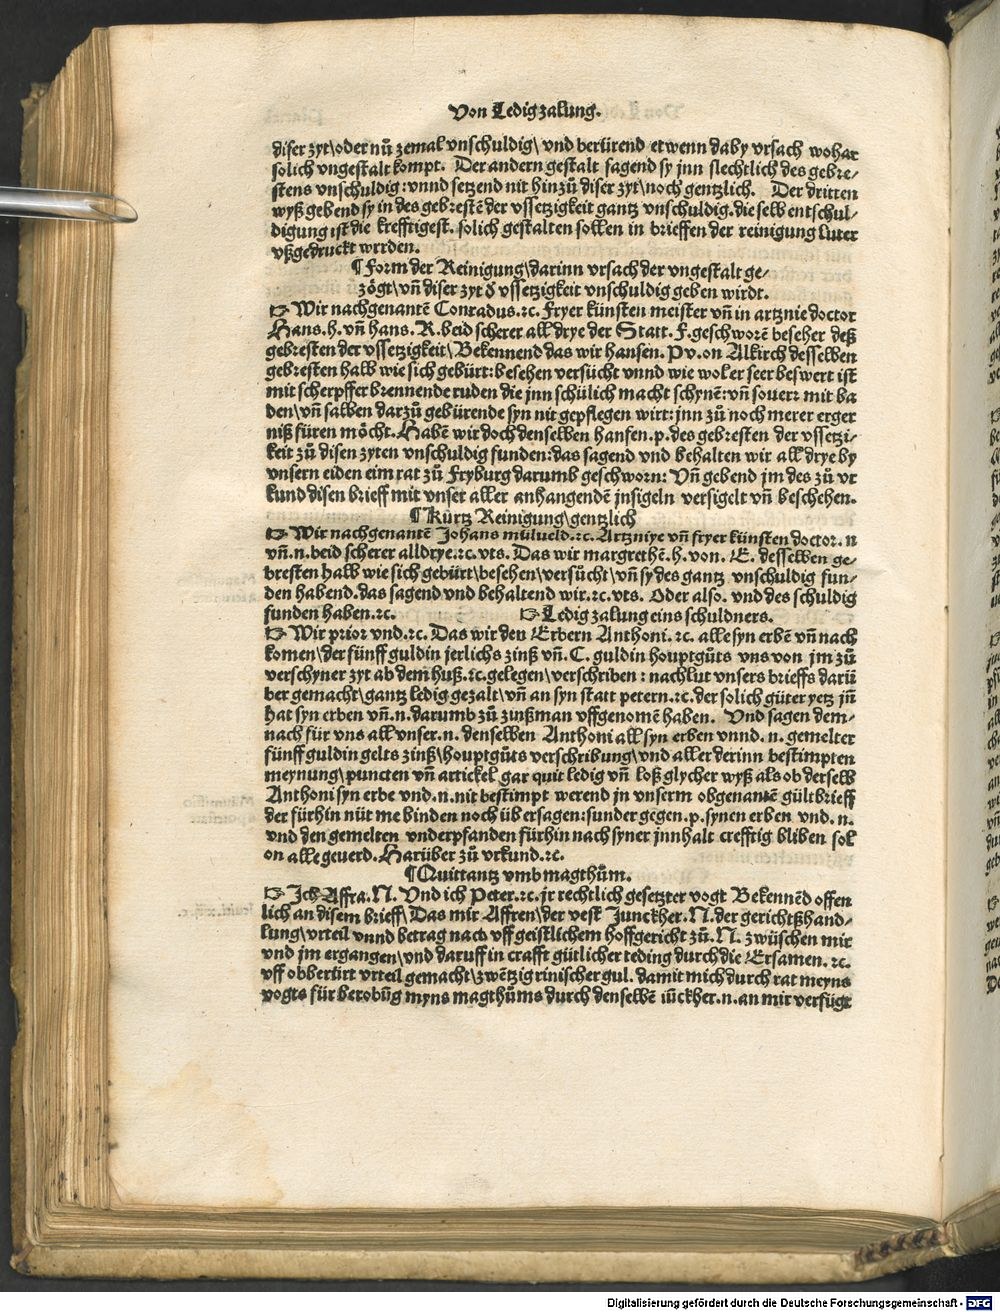 Von Ledigzalung.
diser zyt\oder nů zemal vnschuldig\ vnd berürend etwenn daby vrsach wohar
solich vngestalt kompt. Der andern gestalt sagend sy jnn slechtlich des gebre⸗
stens vnschuldig:vnnd setzend nit hinzů diser zyt\noch gentzlich. Der dritten
wyß gebend sy in des gebrestē der vssetzigkeit gantz vnschuldig.die selb entschul⸗
digung ist die krefftigest. solich gestalten sollen in brieffen der reinigung luter
vßgedruckt werden.
¶Form der Reinigung\darinn vrsach der vngestalt ge⸗
zögt\vñ diser zyt d̕ vssetzigkeit vnschuldig geben wirdt.
☞ Wir nachgenantē Conradus.ꝛc. Fryer künsten meister vñ in artznie doctor
Hans.h.vñ hans.R.beid scherer all drye der Statt.F.geschworē beseher deß
gebresten der vssetzigkeit\Bekennend das wir hansen.P.von Alkirch desselben
gebresten halb wie sich gebürt:besehen versücht vnnd wie wol er seer beswert ist
mit scherpffer brennende ruden die jnn schülich macht schynē:vñ souerꝛ mit ba
den\vñ salben darzů gebürende syn nit gepflegen wirt:jnn zů noch merer erger
niß füren möcht.Habē wir doch denselben hansen.p.des gebresten der vssetzi⸗
keit zů disen zyten vnschuldig funden:das sagend vnd behalten wir all drye by
vnsern eiden eim rat zů Fryburg darumb geschworn: Vñ gebend jm des zů vr
kund disen brieff mit vnser aller anhangendē jnsigeln versigelt vñ beschehen.
¶Kürtz Reinigung\gentzlich
☞ Wir nachgenantē Johans mülueld.ꝛc.Artzniye vñ fryer künsten doctor.n
vñ.n.beid scherer alldrye.ꝛc.vts. Das wir margrethē.h.von. E. desselben ge⸗
bresten halb wie sich gebürt\besehen\versůcht\vñ sy des gantz vnschuldig fun⸗
den habend.das sagend vnd behaltend wir.ꝛc.vts. Oder also. vnd des schuldig
funden haben.ꝛc. ☞Ledig zalung eins schuldners.
☞ Wir prior vnd.ꝛc. Das wir den Erbern Anthoni. ꝛc. alle syn erbē vñ nach
komen\der fünff guldin jerlichs zinß vñ. C. guldin houptgůts vns von jm zů
verschyner zyt ab dem huß.ꝛc.gelegen\verschriben : nachlut vnsers brieffs darü
ber gemacht\gantz ledig gezalt\vñ an syn statt petern.ꝛc.der solich güter yetz jñ
hat syn erben vñ.n.darumb zů zinßman vffgenomē haben. Vnd sagen dem⸗
nach für vns all vnser.n. denselben Anthoni all syn erben vnnd. n. gemelter
fünff guldin gelts zinß\houptgůts verschribung\vnd aller derinn bestimpten
meynung\puncten vñ artickel gar quit ledig vñ loß glycher wyß als ob derselb
Anthoni syn erbe vnd.n.nit bestimpt werend jn vnserm obgenantē gültbrieff
der fürhin nüt me binden noch übersagen:sunder gegen.p.synen erben vnd. n.
vnd den gemelten vnderpfanden fürhin nach syner jnnhalt crefftig bliben sol
on alle geuerd.Harüber zů vrkund.ꝛc.
¶Quittantz vmb magthům.
☞ Ich Affra.N. Vnd ich Peter.ꝛc.jr rechtlich gesetzter vogt Bekennēd offen
lich an disem brieff\Das mir Affren\der vest Junckher.N.der gerichtßhand⸗
lung\vrteil vnnd betrag nach vff geistlichem hoffgericht zů.N. zwüschen mir
vnd jm ergangen\vnd daruff in crafft gütlicher teding durch die Ersamen. ꝛc.
vff obberürt vrteil gemacht\zwētzig rinischer gul. damit mich durch rat meyns
vogts für berobūg myns magthůms durch denselbē iūckher.n.an mir verfügt
Digitalisierung gefördert durch die Deutsche Forschungsgemeinschaft - DFG